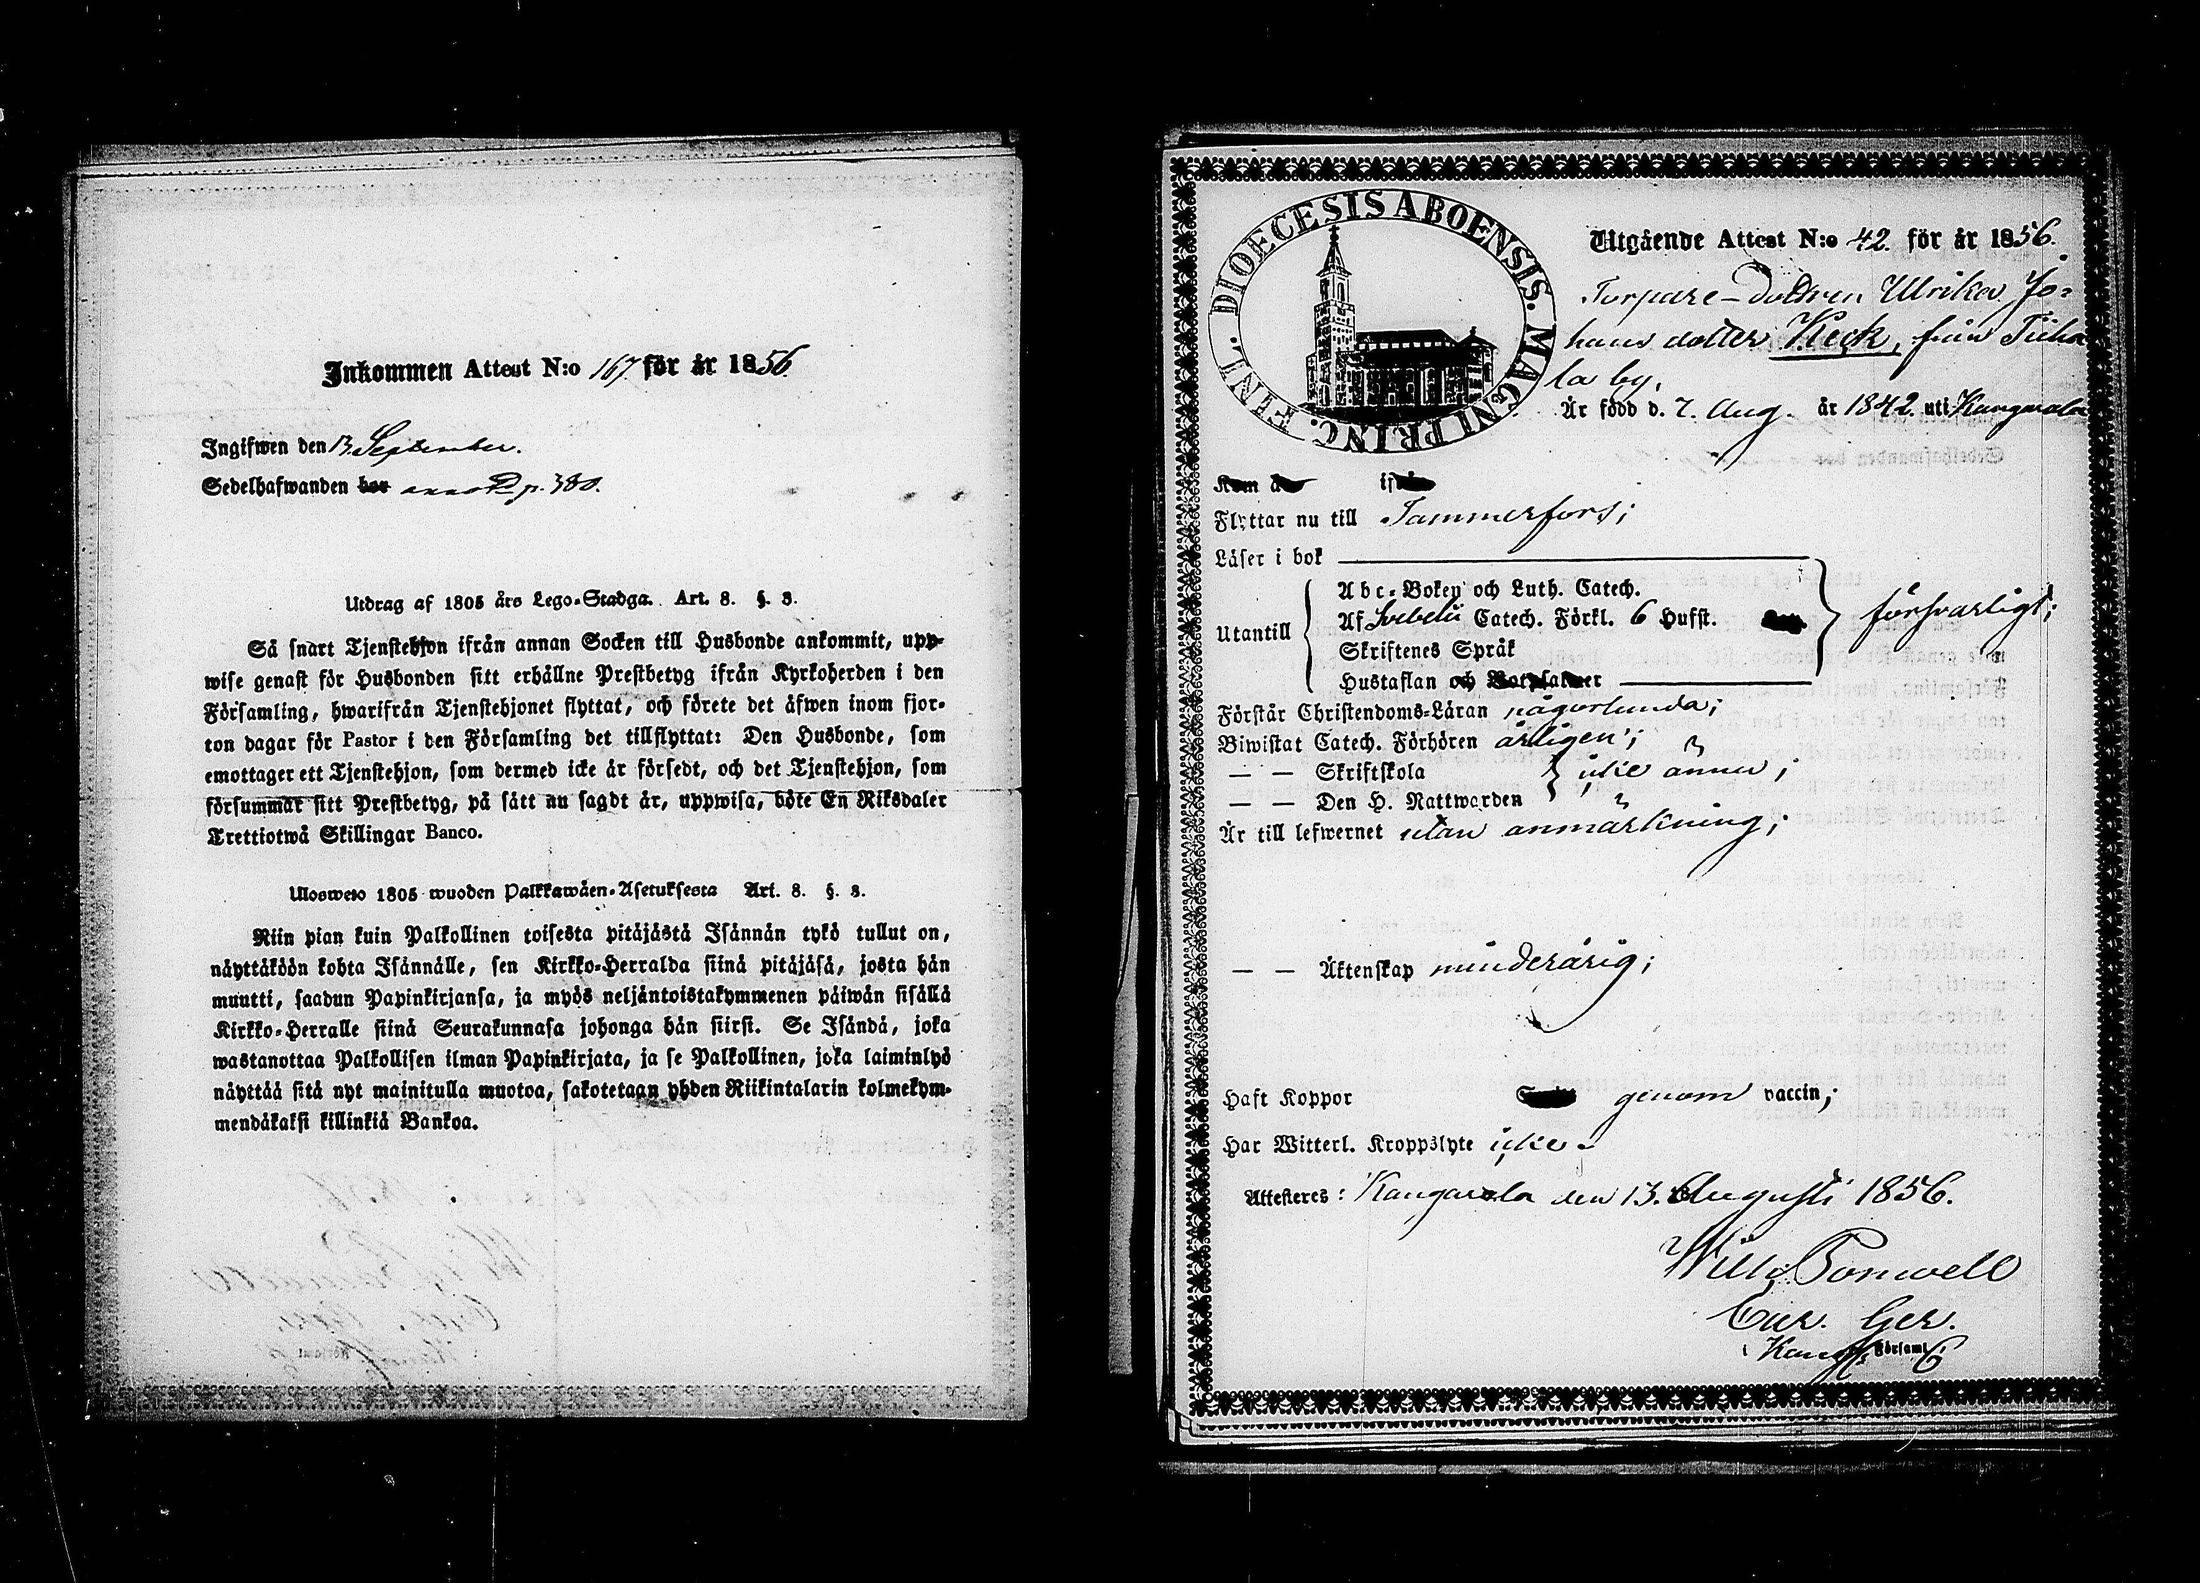 Inkommen Attest N:o 167. för år 1856.
Ingifwen den 13. September.
Sedelhafwanden bor anno p. 380.
Utdrag af 1805 års Lego-Stadga. Art. 8. §. 3.
Så snart Tjenstehjon ifrån annan Socken till Husbonde ankommit, upp-
wise genast för Husbonden sitt erhållne Prestbetyg ifrån Kyrkoherden i den
Församling, hwarifrån Tjenstehjonet flyttat, och förete det äfwen inom fjor-
ton dagar för Pastor i den Församling det tillflyttat: Den Husbonde, som
emottager ett Tjenstehjon, som dermed icke är försedt, och det Tjenstehjon, som
försummar sitt Prestbetyg, på sätt nu sagdt är, uppwisa, böte En Riksdaler
Trettiotwå Skillingar Banco.
Ulosweto 1805 wuoden Palkkawäen-Asetuksesta Art. 8. §. 3.
Niin pian kuin Palkollinen toisesta pitäjästä Isännän tykö tullut on,
näyttäköön kohta Isännälle, sen Kirkko-Herralda siinä pitäjäsä, josta hän
muutti, saadun Papinkirjansa, ja myös neljäntoistakymmenen päiwän sisällä
Kirkko-Herralle siinä Seurakunnasa johonga hän siirsi. Se Isändä, joka
wastanottaa Palkollisen ilman Papinkirjata, ja se Palkollinen, joka laiminlyö
näyttää sitä nyt mainitulla muotoa, sakotetaan yhden Riikintalarin kolmekym-
mendäkaksi killinkiä Bankoa.
FINL. DIOECESIS ABOENSIS. MAGNI PRINC.
Utgående Attest N:o 42. för år 1856.
Torpare-dottren Ulrika Jo-
hans dotter Keck, från Tiiha
la by,
Är född d. 7. Aug. år 1842. uti Kangasala
Kom år ifrån
Flyttar nu till Tammerfors;
Läser i bok
Abc-Boken och Luth. Catech.
Utantill Af Svebelii Catech. Förkl. 6 Hufst. försvarligt;
Skriftenes Språk
Hustaflan och Botpsalmer
Förstår Christendoms-Läran någorlunda;
Biwistat Catech. Förhören årligen;
— — Skriftskola icke ännu;
— — Den H. Nattwarden
Är till lefwernet utan anmärkning;
— — Äktenskap minderårig;
Haft Koppor genom vaccin;
Har Witterl. Kroppslyte icke.
Attesteres: Kangasala den 13. Augusti 1856.
Will. Forswell
Cur. Ger.
i Kang:s Församl.